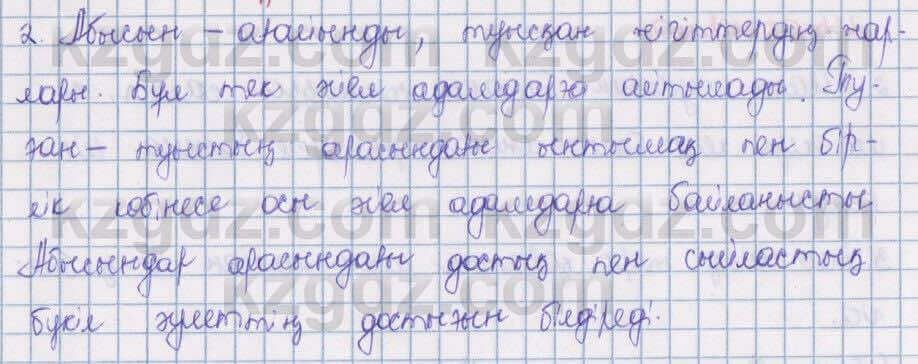 2. Абысын – ағайынды, туысқан жігіттердің жар-
лары. Бұл тек әйел адамдарға айтылады. Ту-
ған – туыстың арасындағы ынтымақ пен бір-
лік көбінесе осы әйел адамдарға байланысты
Абысындар арасындағы достық пен сыйластық
бүкіл әулеттің достығын білдіреді.